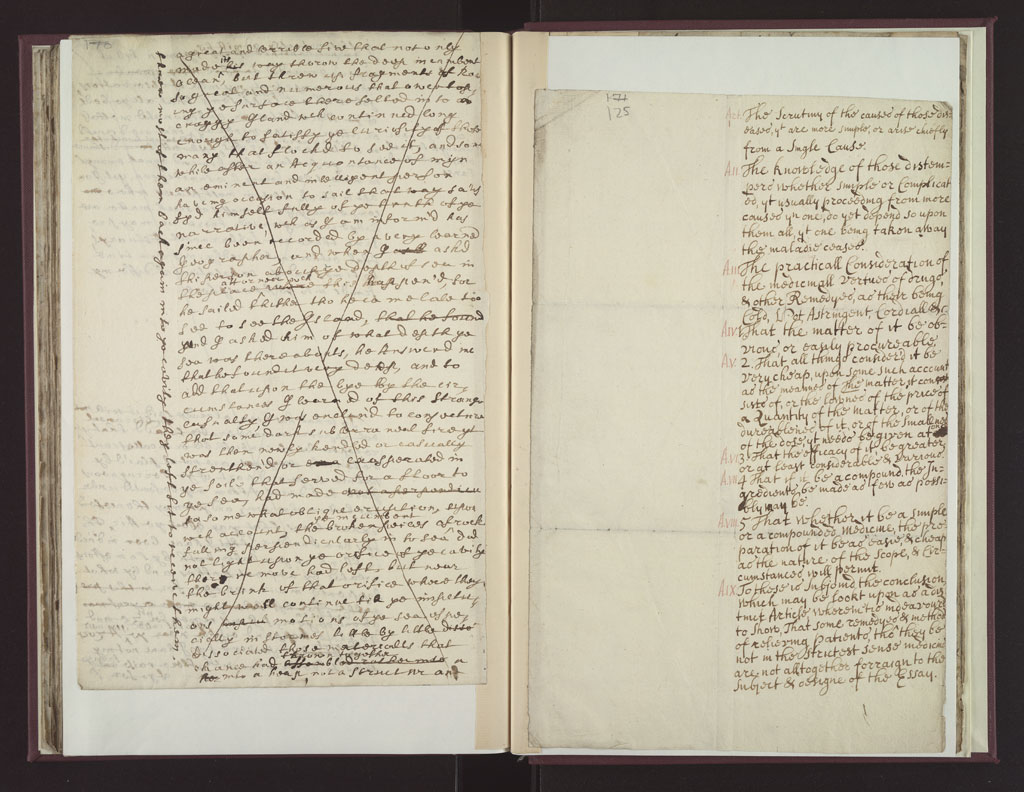 a great and terrible fire that not only
made its way thorow the deep incumbent
ocean, but threw up fragments of Roc
so great and numerous that overtop
ing ye surface there setled in to a
craggy Island wch continued long
enough to satisfy ye curiosity of the
many that flocked to see it, and som
while after an Acquaintance of myn
an eminent and intelligent person
having occasion to sail that way satis
fyd himself fully of ye truth of ye
narrative wch as I am informd has
since been recorded by a very learned
Geographer, and when I asked
this person about ye depth of sea in
the place this happen'd, for
he sailed thither tho he came late too
see to see the Island, that he found
and I asked him of what depth ye
sea was there abouts, he Answerd me
that he found it very deep, and to
add that upon the bye by the cir,
cumstances I learnd of this strange
casualty, I was enclined to conjecture
that some dart subterraneal fire yt
was then newly kendled or casually
strenthend or exasperated in
ye soile that served for a floor to
ye sea, had made
a somewhat oblique eruption, upon
wch account, the broken peices of rock
falling perpendicularly in the sea did
not light upon ye orifice of ye cavity
they had left but near
the brink of that orifice where they
might well continue til ye insensi,
motions of ye sea espe,
cially in stormes little by little
dissociated these materialls that
chance had thrown together
into a heap, not a structure and
threw most of them back again into ye cavity they left but to receive them
171
125
Ar. I The Scrutiny of the causes of those dis
eases, yt are more simple, or arise chiefly
from a single Cause.
A.II The knowledge of those distem-
pers whether simple or Complicat
ed, yt usually proceeding from more
causes yn one, do yet depend so upon
them all, yt one being taken away
the maladie ceases.
A.III The practicall Consideration of
the medicinall vertues of drugs,
& other Remedyes, as their being
Cold, Hot, Astringent, Cordiall &c
A.IV 1. That the matter of it be ob-
vious, or easily procureable.
A.V. 2. That, all things considerd it be
very cheap, upon some such account
as the meannes of the matter, it cons
ists of, or the lowness of the price of
a Quantity of the matter, or of the
durableness of it, or of the smallnes
of the dose, yt needs be given at once
A.VI 3. That the efficacy of it be great,
or at least considerable & various.
A.VII 4. That if it be a compound, the In-
gredients, be made as few as possi-
bly may be.
A.VIII 5. That whether it be a simple,
or a compounded medicine, the pre-
paration of it be as easie, & cheap
as the nature of the scope, & Cir-
cumstances will permit.
A.IX To these is Subjoind the conclusion,
which may be lookt upon as a dis
tinct Article wherein 'tis indeavour'd
to show, That some remedyes & methods
of relieving patients, tho' they be
not in the strictest sense medicines
are not altogether forraign to the
subject & designe of the Essay.